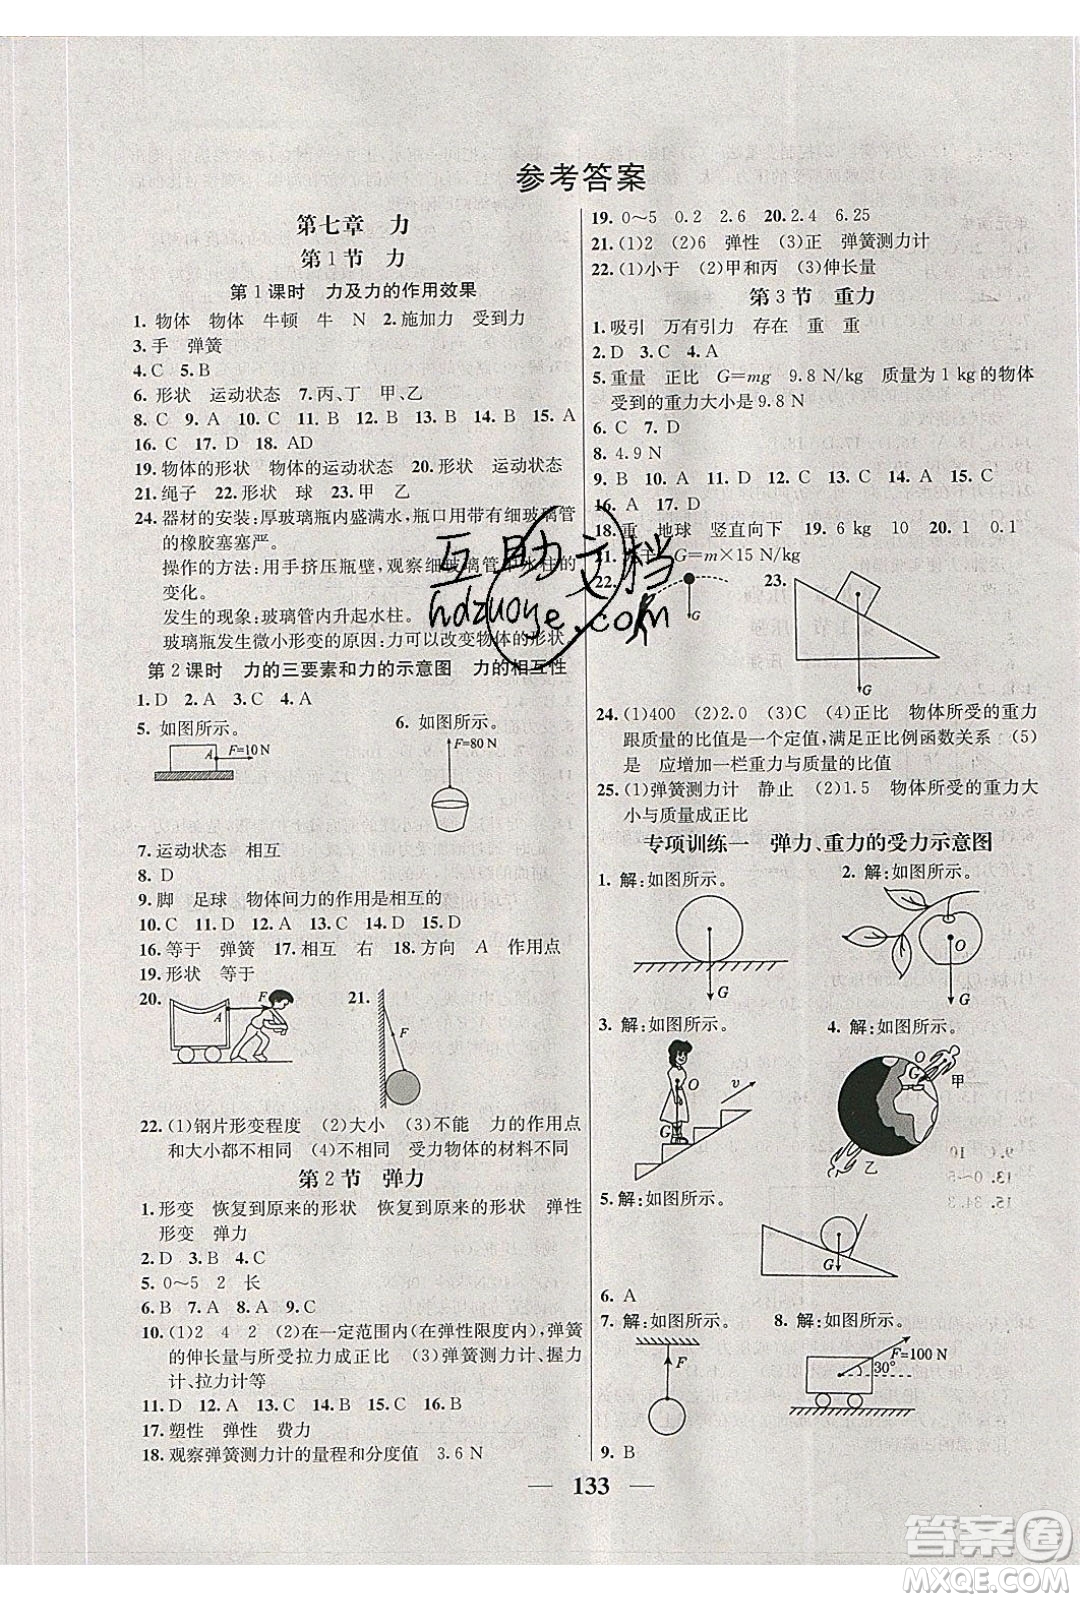 参考答案
第七章　力
第1节　力
第1课时　力及力的作用效果
1. 物体　物体　牛顿　牛　N　2. 施加力　受到力
3. 手　弹簧
4. C　5. B
6. 形状　运动状态　7. 丙、丁　甲、乙
8. C　9. A　10. C　11. B　12. B　13. C　14. B　15. A
16. C　17. D　18. AD
19. 物体的形状　物体的运动状态　20. 形状　运动状态
21. 绳子　22. 形状　球　23. 甲　乙
24. 器材的安装：厚玻璃瓶内盛满水，瓶口用带有细玻璃管
的橡胶塞塞严。
操作的方法：用手挤压瓶壁，观察细玻璃管中水柱的
变化。
发生的现象：玻璃管内升起水柱。
玻璃瓶发生微小形变的原因：力可以改变物体的形状。
第2课时　力的三要素和力的示意图　力的相互性
1. D　2. A　3. C　4. A
5. 如图所示。　6. 如图所示。
A　F=10 N　F=80 N
7. 运动状态　相互
8. D
9. 脚　足球　物体间力的作用是相互的
10. C　11. D　12. A　13. C　14. D　15. D
16. 等于　弹簧　17. 相互　右　18. 方向　A　作用点
19. 形状　等于
20.　A　F　21.　F
22. (1)钢片形变程度　(2)大小　(3)不能　力的作用点
和大小都不相同　(4)不相同　受力物体的材料不同
第2节　弹力
1. 形变　恢复到原来的形状　恢复到原来的形状　弹性
形变　弹力
2. D　3. B　4. C
5. 0～5　2　长
6. B　7. A　8. A　9. C
10. (1)2　4　2　(2)在一定范围内(在弹性限度内)，弹簧
的伸长量与所受拉力成正比　(3)弹簧测力计、握力
计、拉力计等
11. D　12. A　13. D　14. C　15. D　16. B
17. 塑性　弹性　费力
18. 观察弹簧测力计的量程和分度值　3.6 N
19. 0～5　0.2　2.6　20. 2.4　6.25
21. (1)2　(2)6　弹性　(3)正　弹簧测力计
22. (1)小于　(2)甲和丙　(3)伸长量
第3节　重力
1. 吸引　万有引力　存在　重　重
2. D　3. C　4. A
5. 重量　正比　G=mg　9.8 N/kg　质量为1 kg的物体
受到的重力大小是9.8 N
6. C　7. D
8. 4.9 N
9. B　10. A　11. D　12. A　13. D　14. A　15. C
16. A　17. D
18. 重　地球　竖直向下　19. 6 kg　10　20. 1　0.1
G=m×15 N/kg
22.　G　23.　G
24. (1)400　(2)2.0　(3)C　(4)正比　物体所受的重力
跟质量的比值是一个定值，满足正比例函数关系　(5)
是　应增加一栏重力与质量的比值
25. (1)弹簧测力计　静止　(2)1.5　物体所受的重力大
小与质量成正比
专项训练一　弹力、重力的受力示意图
1. 解：如图所示。　2. 解：如图所示。
G　O　G
3. 解：如图所示。　4. 解：如图所示。
O　v　G　G　甲　乙
5. 解：如图所示。
G
6. A
7. 解：如图所示。　8. 解：如图所示。
F　F=100 N　30°
9. B
133
互助文档
hdzuoye.com
答案圈
MXQE.COM